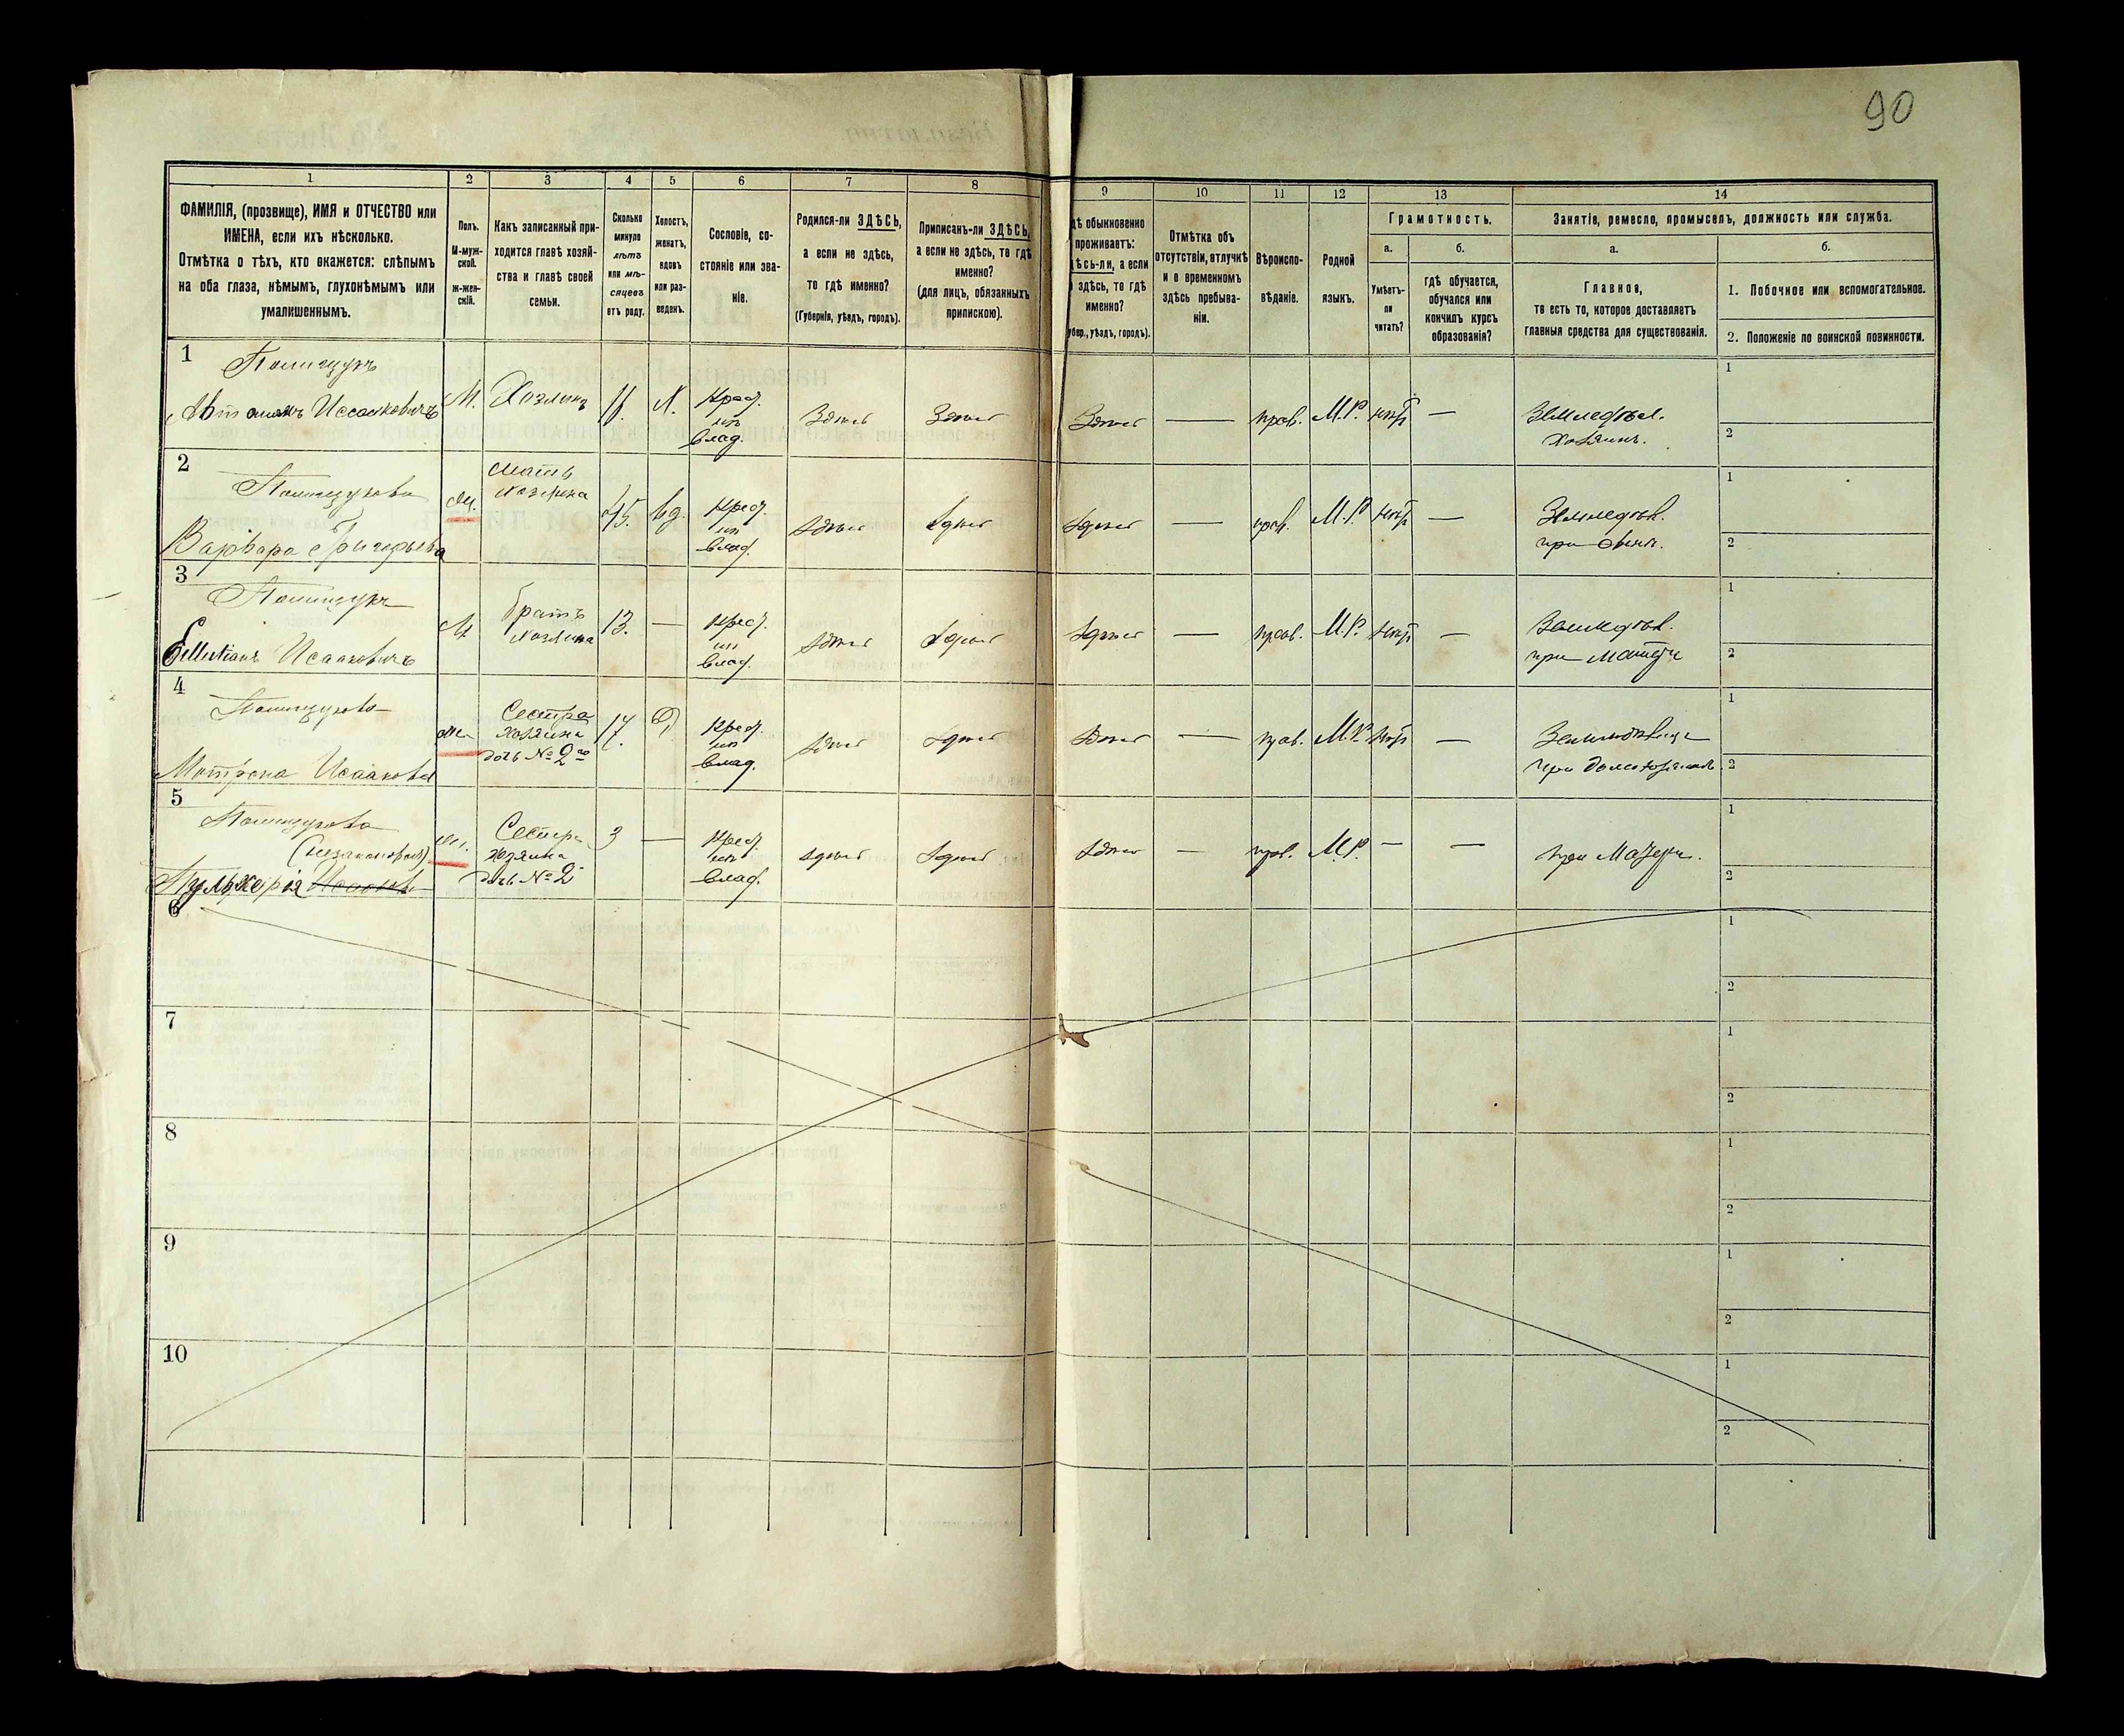 90
1 2 3 4 5 6 7 8 9 10 11 12 13 14
ФАМИЛІЯ, (прозвище), ИМЯ и ОТЧЕСТВО или
ИМЕНА, если ихъ нѣсколько.
Отмѣтка о тѣхъ, кто окажется: слѣпымъ
на оба глаза, нѣмымъ, глухонѣмымъ или
умалишеннымъ.
Полъ.
М-муж-
ской.
Ж-жен-
скій.
Какъ записанный при-
ходится главѣ хозяй-
ства и главѣ своей
семьи.
Сколько
минуло
лѣтъ
или мѣ-
сяцевъ
отъ роду.
Холостъ,
женатъ,
вдовъ
или раз-
веденъ.
Сословіе, со-
стояніе или зва-
ніе.
Родился-ли ЗДѢСЬ,
а если не здѣсь,
то гдѣ именно?
(Губернія, уѣздъ, городъ).
Приписанъ-ли ЗДѢСЬ,
а если не здѣсь, то гдѣ
именно?
(для лицъ, обязанныхъ
припискою).
дѣ обыкновенно
проживаетъ:
дѣсь-ли, а если
здѣсь, то гдѣ
именно?
убер., уѣздъ, городъ).
Отмѣтка объ
отсутствіи, отлучкѣ
и о временномъ
здѣсь пребыва-
ніи.
Вѣроиспо-
вѣданіе.
Родной
языкъ.
Грамотность.
а.
Умѣетъ-
ли
читать?
б.
гдѣ обучается,
обучался или
кончилъ курсъ
образованія?
Занятіе, ремесло, промыселъ, должность или служба.
а.
Главное,
то есть то, которое доставляетъ
главныя средства для существованія.
б.
1. Побочное или вспомогательное.
2. Положеніе по воинской повинности.
1
Полищукъ
Исааковичъ
М.
Хозяинъ
Х.
Крес.
изъ
влад.
Здѣсь
Здѣсь
Здѣсь
—
прав.
М.Р.
нѣтъ
—
Земледѣл.
Хозяинъ.
1
2
2
Полищукова
Варвара Григорьева
Ж.
Мать
хозяина
45.
Вд.
Крес.
изъ
влад.
Здѣсь
Здѣсь
Здѣсь
—
прав.
М.Р.
нѣтъ
—
Земледѣл.
при
1
2
3
Полищукъ
Исааковичъ
М
братъ
хозяина
13.
—
Крес.
изъ
влад.
Здѣсь
Здѣсь
Здѣсь
—
прав.
М.Р.
нѣтъ
—
Земледѣл.
при Матери
1
2
4
Полищукова
Мотрона Исаакова
Ж.
Сестра
хозяина
дочь № 2го
Д
Крес.
изъ
влад.
Здѣсь
Здѣсь
Здѣсь
—
прав.
М.Р.
нѣтъ
—
при
1
2
5
Полищукова
(незаконорож)
Пулькерія Исаакова
Ж.
Сестра
хозяина
дочь № 2
3
—
Крес.
изъ
влад.
Здѣсь
Здѣсь
Здѣсь
—
прав.
М.Р.
—
—
при Матери.
1
2
6
1
2
7
1
2
8
1
2
9
1
2
10
1
2